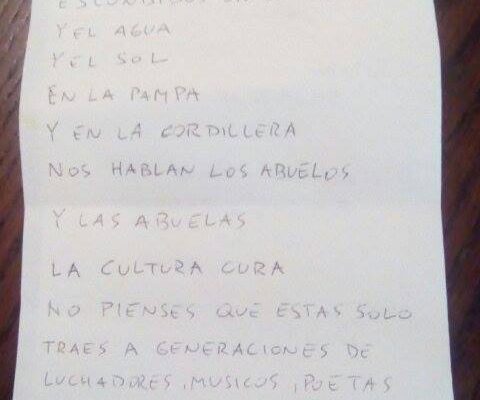 Y EL AGUA
Y EL SOL
EN LA PAMPA
Y EN LA CORDILLERA
NOS HABLAN LOS ABUELOS
Y LAS ABUELAS
LA CULTURA CURA
NO PIENSES QUE ESTAS SOLO
TRAES A GENERACIONES DE
LUCHADORES, MUSICOS, POETAS